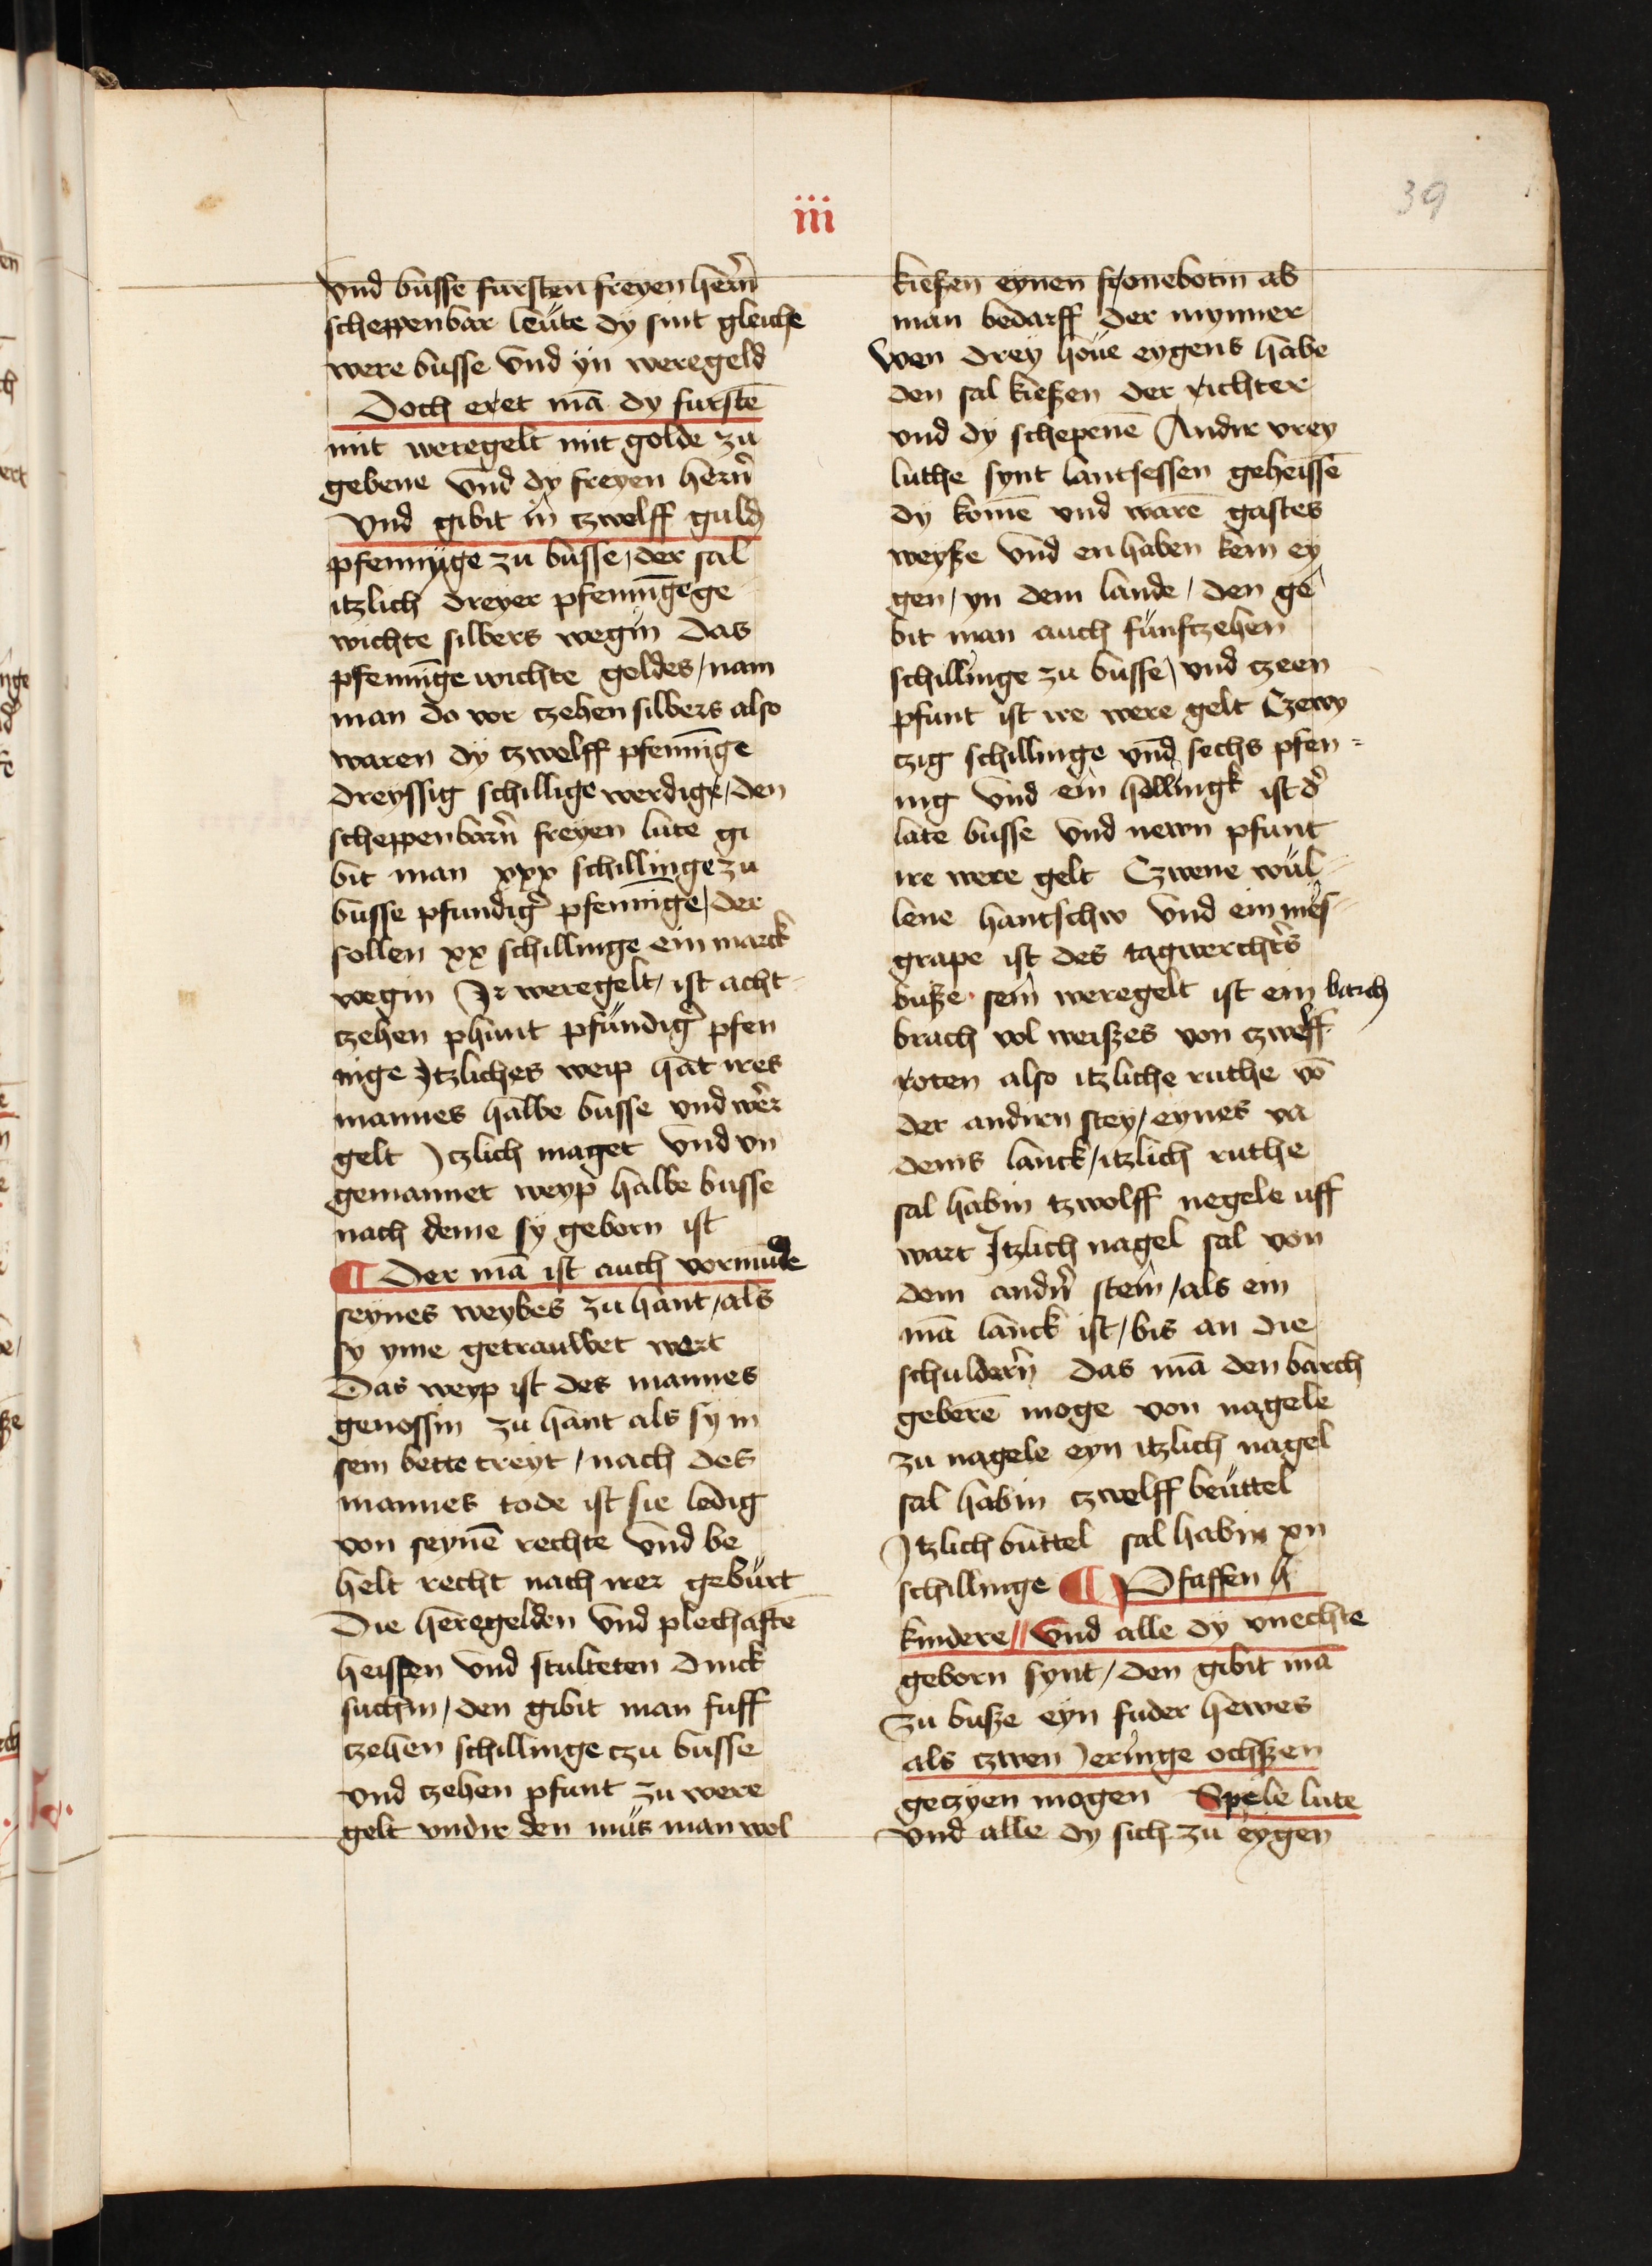 iii
39
vnd busse fursten freyen hern̄
scheppenbar leute dÿ sint gleiche
were busse vnd yn weregeld
Doch eret mā dy furstē
mit weregelt mit golde zu
gebene vnd dy freyen hern̄
vnd gibit in czwelff guld
pfennige zu busse / der sal
itzlich dreyer pfenninge ge
wichte silbers wegin das
pfenninge wichte goldes / nam
man do vor czehen silbers also
waren dÿ czwelff pfenninge
dreyssig schillige werdige / den
scheppenbarn̄ freyen lute gi
bit man xxx schillinge zu
busse pfundig̛ pfenninge / der
sollen xx schillinge ein marck
wegin Ir weregelt / ist acht-
czehen phunt pfundig̛ pfen
nige Itzliches weip hat ires
mannes halbe busse vnd wer
gelt Iczlich maget vnd vn
gemannet weyp halbe busse
nach deme sy geborn ist
¶ Der mā ist auch vormūde
seynes weybes zu hant / als
sy yme getrauwet wert
Das weyp ist des mannes
genossin zu hant als sy in
sein bette treyt / nach des
mannes tode ist sie ledig
von seynē rechte vnd be
helt recht nach irer geburt
Die heregelden vnd plechaftē
heissen vnd stulteten dinck
suchin / den gibit man fuff
czehen schillinge czu busse
vnd czehen pfunt zu were
gelt vndir den mus man wol
kieſzen eynen fronebotin ab
man bedarff der mynner
wen drey houe eygens habe
den sal kieszen der richter
vnd dÿ schepenē Andir vrey
luthe synt lantsessen geheissē
dy komē vnd warē gastes
weysze vnd en haben kein ey
gen / yn dem lande / den ge
bit man auch funfczehen
schillinge zu busse / vnd czeen
pfunt ist ire were gelt Czewy
czig schillinge vnd sechs pfen-
nig vnd ein hellingk ist d̛
late busse vnd newn pfunt
ire were gelt Czwene wul-
lene hantschw vnd ein mes-
grape ist des tagwercht̛s
busze sein weregelt ist ein barch
brach vol weiszes von czwelff
roten also itzliche ruthe vō
der andiren stey / eynes va
dems lanck / itzlich ruthe
sal habin tzwolff negele uff
wart Itzlich nagel sal von
dem andn̄ stein / als ein
mā lanck ist / bis an die
schuldern̄ das mā den barch
geberē moge von nagele
zu nagele eyn itzlich nagel
sal habin czwelff beuttel
Itzlich buttel sal habin xii
schillinge ¶ Pfaffen
kindere // vnd alle dy vnechte
geborn synt / den gibit mā
zu busze eyn fuder hewes
als czwen Ieringe ochszen
geczyen mogen Spele lute
vnd alle dy sich zu eygen